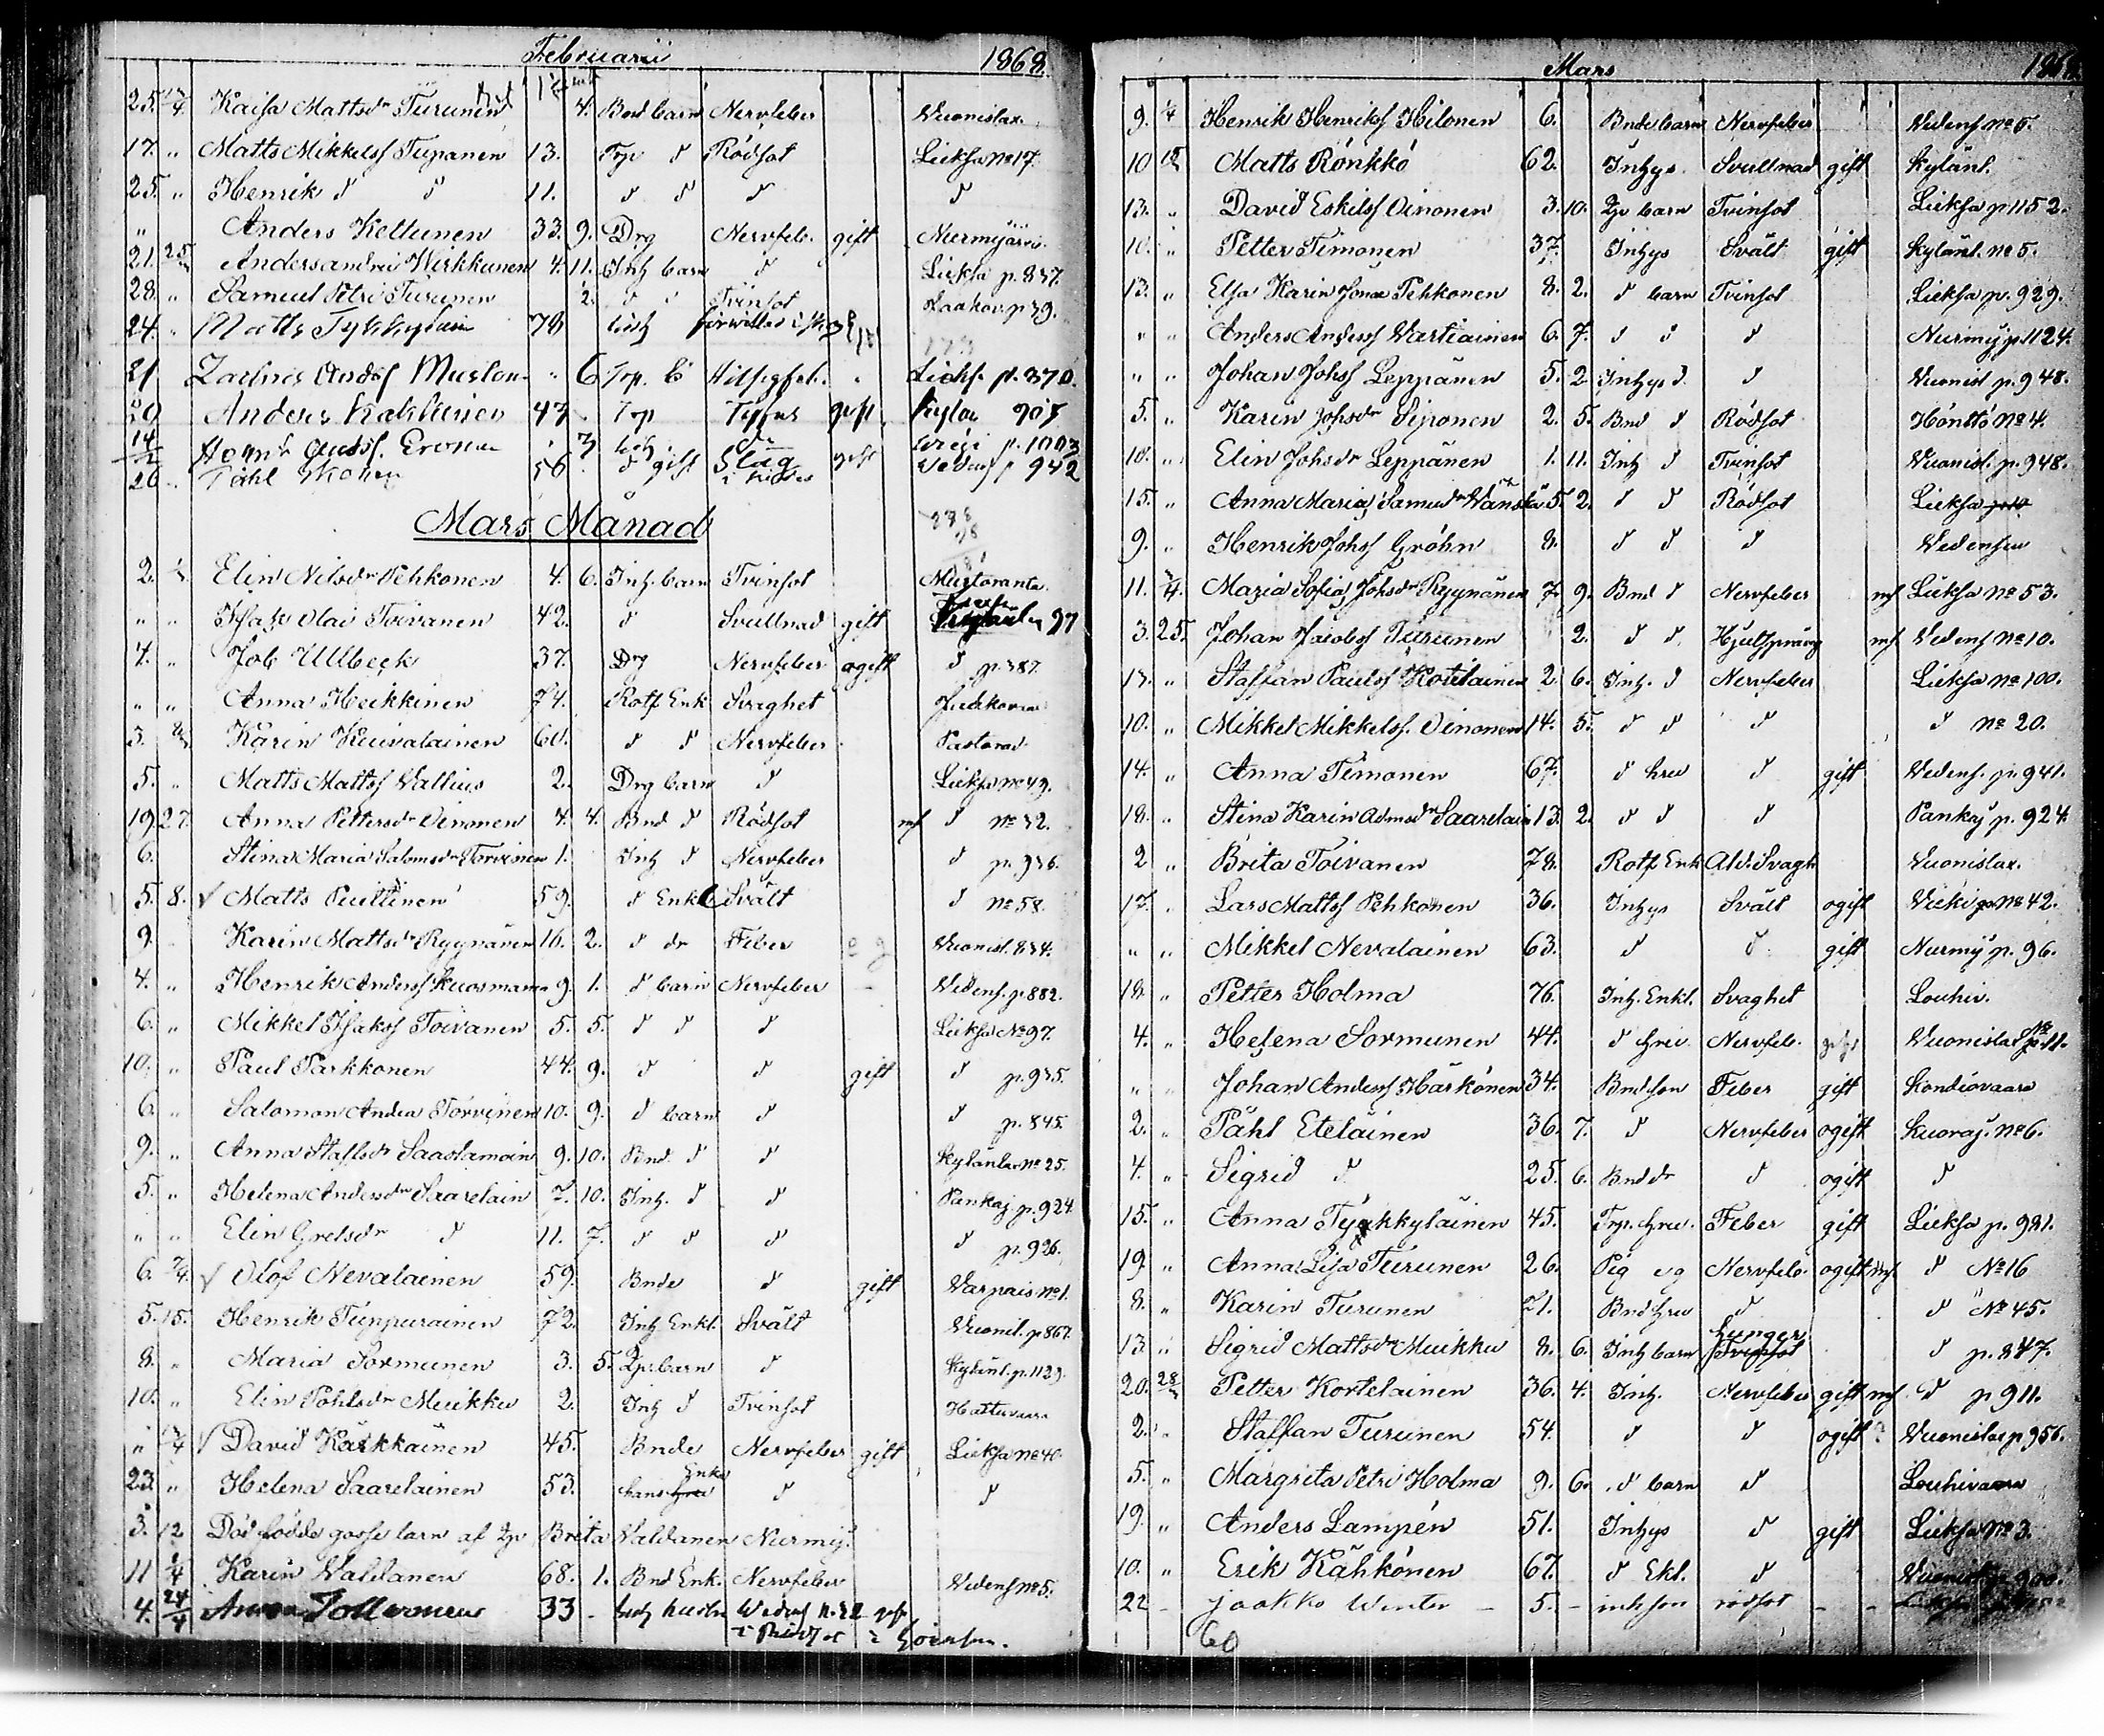 Februarii 1868.
25. Kaisa Mattsdr Turunen 4. Bnd barn Nervfeber Vuonislax.
17. " Matts Mikkelsf Tupanen 13. Trp d Rödsot Lieksa No 17.
25. " Henrik d d 11. d d d d
" Anders Kettunen 33. 9. Drg Nervfeb. gift Nurmijärvi.
21. 25 Anders Andrei Wirkkunen 4. 11. Inh barn d Lieksa p. 837.
28. " Samuel Petri Turunen 2. d d Tvinsot Jaakov. p 39.
24. " Matts 78
21 Andsf 6 Trp. Lieks. p. 370.
29 Anders Kakkunen 43 Trp Tyfus gift Kylän 907
14 3 p. 1003
26 .. Påhl 56. d gift Slag gift p 942
Mars Månad
2. Elin Nilsdr Pehkonen 4. 6. Inh. barn Tvinsot
" " Isak Olai Toivanen 42. d Svullnad gift 97
4. " Job Ullbeck 37. Drg Nervfeber ogift d p. 387.
" " Anna Heikkinen 74. Rotf Enk Svaghet
3. Karin Kuivalainen 60. d d Nervfeber
5. " Matts Mattsf Wallius 2. Drg barn d Lieksa No 49.
19. 27. Anna Pettersdr Oinonen 4. 4. Bnd d Rödsot mf d No 32.
6. Stina Maria Salomsdr Torvinen 1. Inh d Nervfeber d p. 936.
5. 8. √ Matts Puittinen 59. d Enkl Svält d No 58.
9. Karin Mattsdr Ryynänen 16. 2. d dr Feber Vuonisl. 834.
4. " Henrik Andersf Kuosmanen 9. 1. d barn Nervfeber Vidensf. p. 882.
6. " Mikkel Isaksf Toivanen 5. 5. d d d Lieksa No 97.
10. " Paul Parkkonen 44. 9. d d gift d p. 935.
6. " Salomon Andea Torvinen 10. 9. d barn d d p. 845.
9. " Anna Stafsdr Saastamoin 9. 10. Bnd. d d Kylänl. No 25.
5. " Helena Andersdr Saarelain 7. 10. Inh. d d Pankaj. p. 924.
" " Elin Gretsdr d 11. 7. d d d d p. 926.
6. √ Olof Nevalainen 59. Bnde d gift Varpais No 1.
5. 15. Henrik Timpurainen 72. Inh Enkl. Svält Vuonisl. p 867.
8. " Maria Sormunen 3. 5. Lp. barn d Kylänl. p. 1129.
10. " Elin Påhlsdr Muikku 2. Inh d Tvinsot Hattuvaara
" √ David Kärkkäinen 45. Bnde Nervfeber gift Lieksa No 40.
23. " Helena Saarelainen 53. hans Enka d d
3. 12 Död födde gosse barn af Lp Brita Valdanen Nurmij.
11 Karin Valdanen 68. 1. Bnd Enk. Nervfeber Vedens No 5.
4. 24/4 Anna 33
Mars
9. Henrik Henriksf Hilonen 6. Bnde barn Nervfeber Vedens No 5.
10 Matts Rönkkö 62. Inhys. Svullnad gift Kylänl.
13. " David Eskilsf Oinonen 3. 10. Lp barn Tvinsot Lieksa p 1152.
10. " Petter Timonen 37. Inhys Svält gift Kylänl. No 5.
13. " Elsa Karin Jonae Pehkonen 8. 2. d barn Tvinsot Lieksa p. 929.
" " Anders Andersf Wartiainen 6. 7. d d d Nurmij p. 1124.
" " Johan Johsf Leppänen 5. 2 Inhys d. d Vuonisl p. 948.
5. " Karin Johsdr Siponen 2. 5. Bnd d Rödsot Höntö No 4.
10. " Elin Johsdr Leppänen 1. 11. Inh d Tvinsot Vuonisl. p. 948.
15. " Anna Maria Samudr Wänskä 5. 2. d d Rödsot Lieksa
9. " Henrik Johsf Gröhn 8. d d d Vedensu
11. Maria Sofia Johsdr Ryynänen 7. 9. Bnd d Nervfeber mf Lieksa No 53.
3. 25. Johan Jacobsf Turunen 2. d d. Hjultsprång mf Vedens No 10.
13. " Staffan Paulsf Kotilainen 2. 6. Inh. d Nervfeber Lieksa No 100.
10. " Mikkel Mikkelsf. Oinonen 14. 5. d d d d No 20.
14. " Anna Timonen 67. d hru d gift Vedens. p. 941.
18. " Stina Karin Admsdr Saarelain 13. 2. d d d Pankaj p. 924.
2 " Brita Toivanen 78. Rotf Enk Ald. Svagh Vuonislax.
17. " Lars Mattsf Pehkonen 36. Inhys Svält ogift Vieki No 42.
" " Mikkel Nevalainen 63. d d gift Nurmij p. 96.
18. " Petter Holma 76. Inh. Enkl. Svaghet Louhiv.
4. " Helena Sormunen 44. d hru Nervfeb. gift Vuonislax No 11.
" " Johan Andersf Härkönen 34. Bndson Feber gift Kondiovaara
2. " Påhl Eteläinen 36. 7. d Nervfeber ogift Kuoraj. No 6.
4. " Sigrid d 25. 6. Bnd dr d ogift d
15. " Anna Tykkyläinen 45. Trp. hru. Feber gift Lieksa p. 981.
19. " Anna Lisa Turunen 26. Pig Nervfeb. ogift mf. d No 16
8. " Karin Turunen 71. Bnd hru d d No 45.
13. " Sigrid Mattsdr Muikku 8. 6. Inh barn hunger Tvinsot d p. 847.
20. 28 Petter Kortelainen 36. 4. Inh. Nervfeber gift mf d p 911.
2. " Staffan Turunen 54. d d ogift Vuonislax p 956.
5. " Margrita Petri Holma 9. 6. d barn d Louhivaara
19. " Anders Lampén 51. Inhys d gift Lieksa No 3.
10. " Erik Kähkönen 67. d Ekl. d
22 - jaakko Winter - 5. - inh son rödsot - -
60